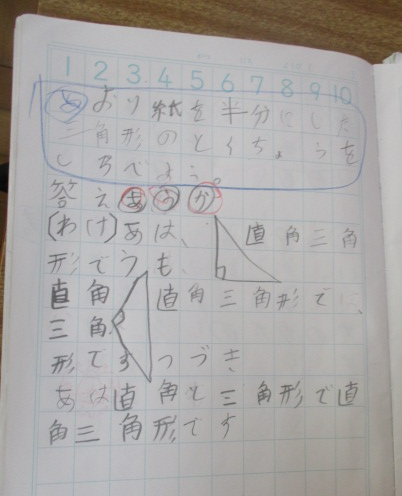 1 2 3 4 5 6 7 8 9 10
め おり紙を半分にした
三角形のとくちょうを
しらべよう。
答え あ う か
(わけ)あは、 直角三角
形でうも、
直角 直角三角形で、
三角
形です つづき
あは直角と三角形で直
角三角形です